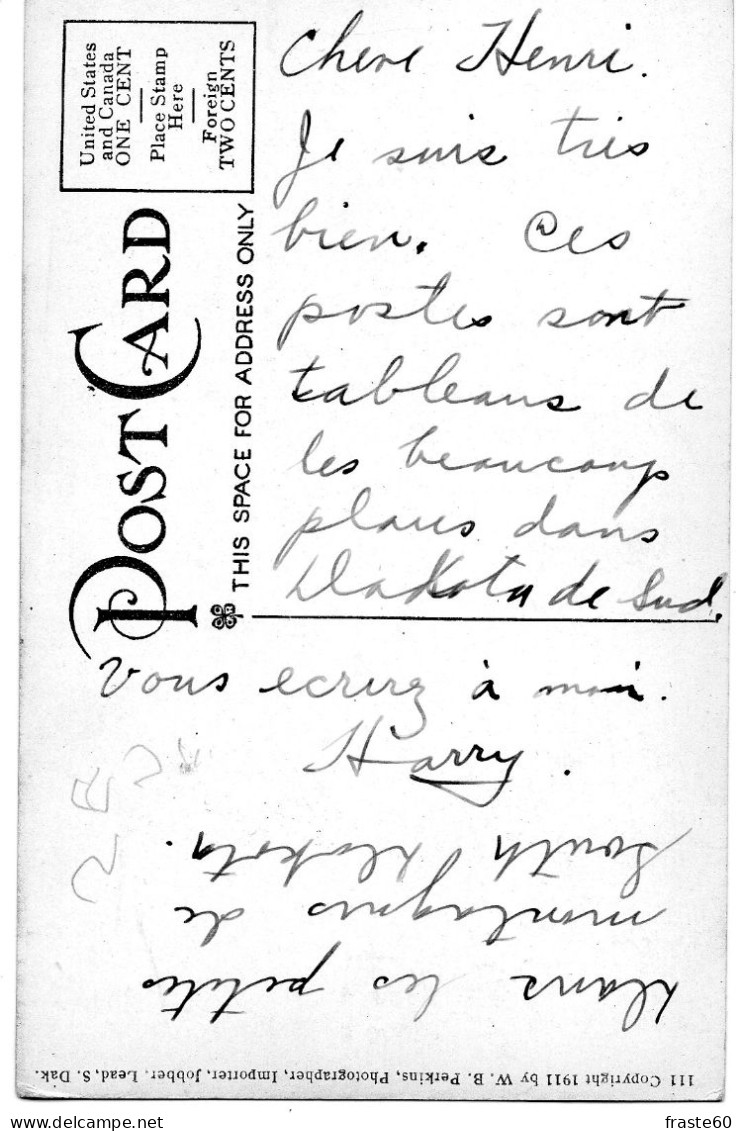 United States
and Canada
ONE CENT
Place Stamp
Here
Foreign
TWO CENTS
POST CARD
THIS SPACE FOR ADDRESS ONLY
Chere Henri.
Je suis tres
bien. Ces
postes sont
tableaus de
les beaucoup
plaus dans
Dakota de Sud.
Vous ecrirez à moi.
Harry.
Dans les petites
montagnes de
South Dakota.
111 Copyright 1911 by W. B. Perkins, Photographer, Importer, Jobber. Lead, S. Dak.
fraste60